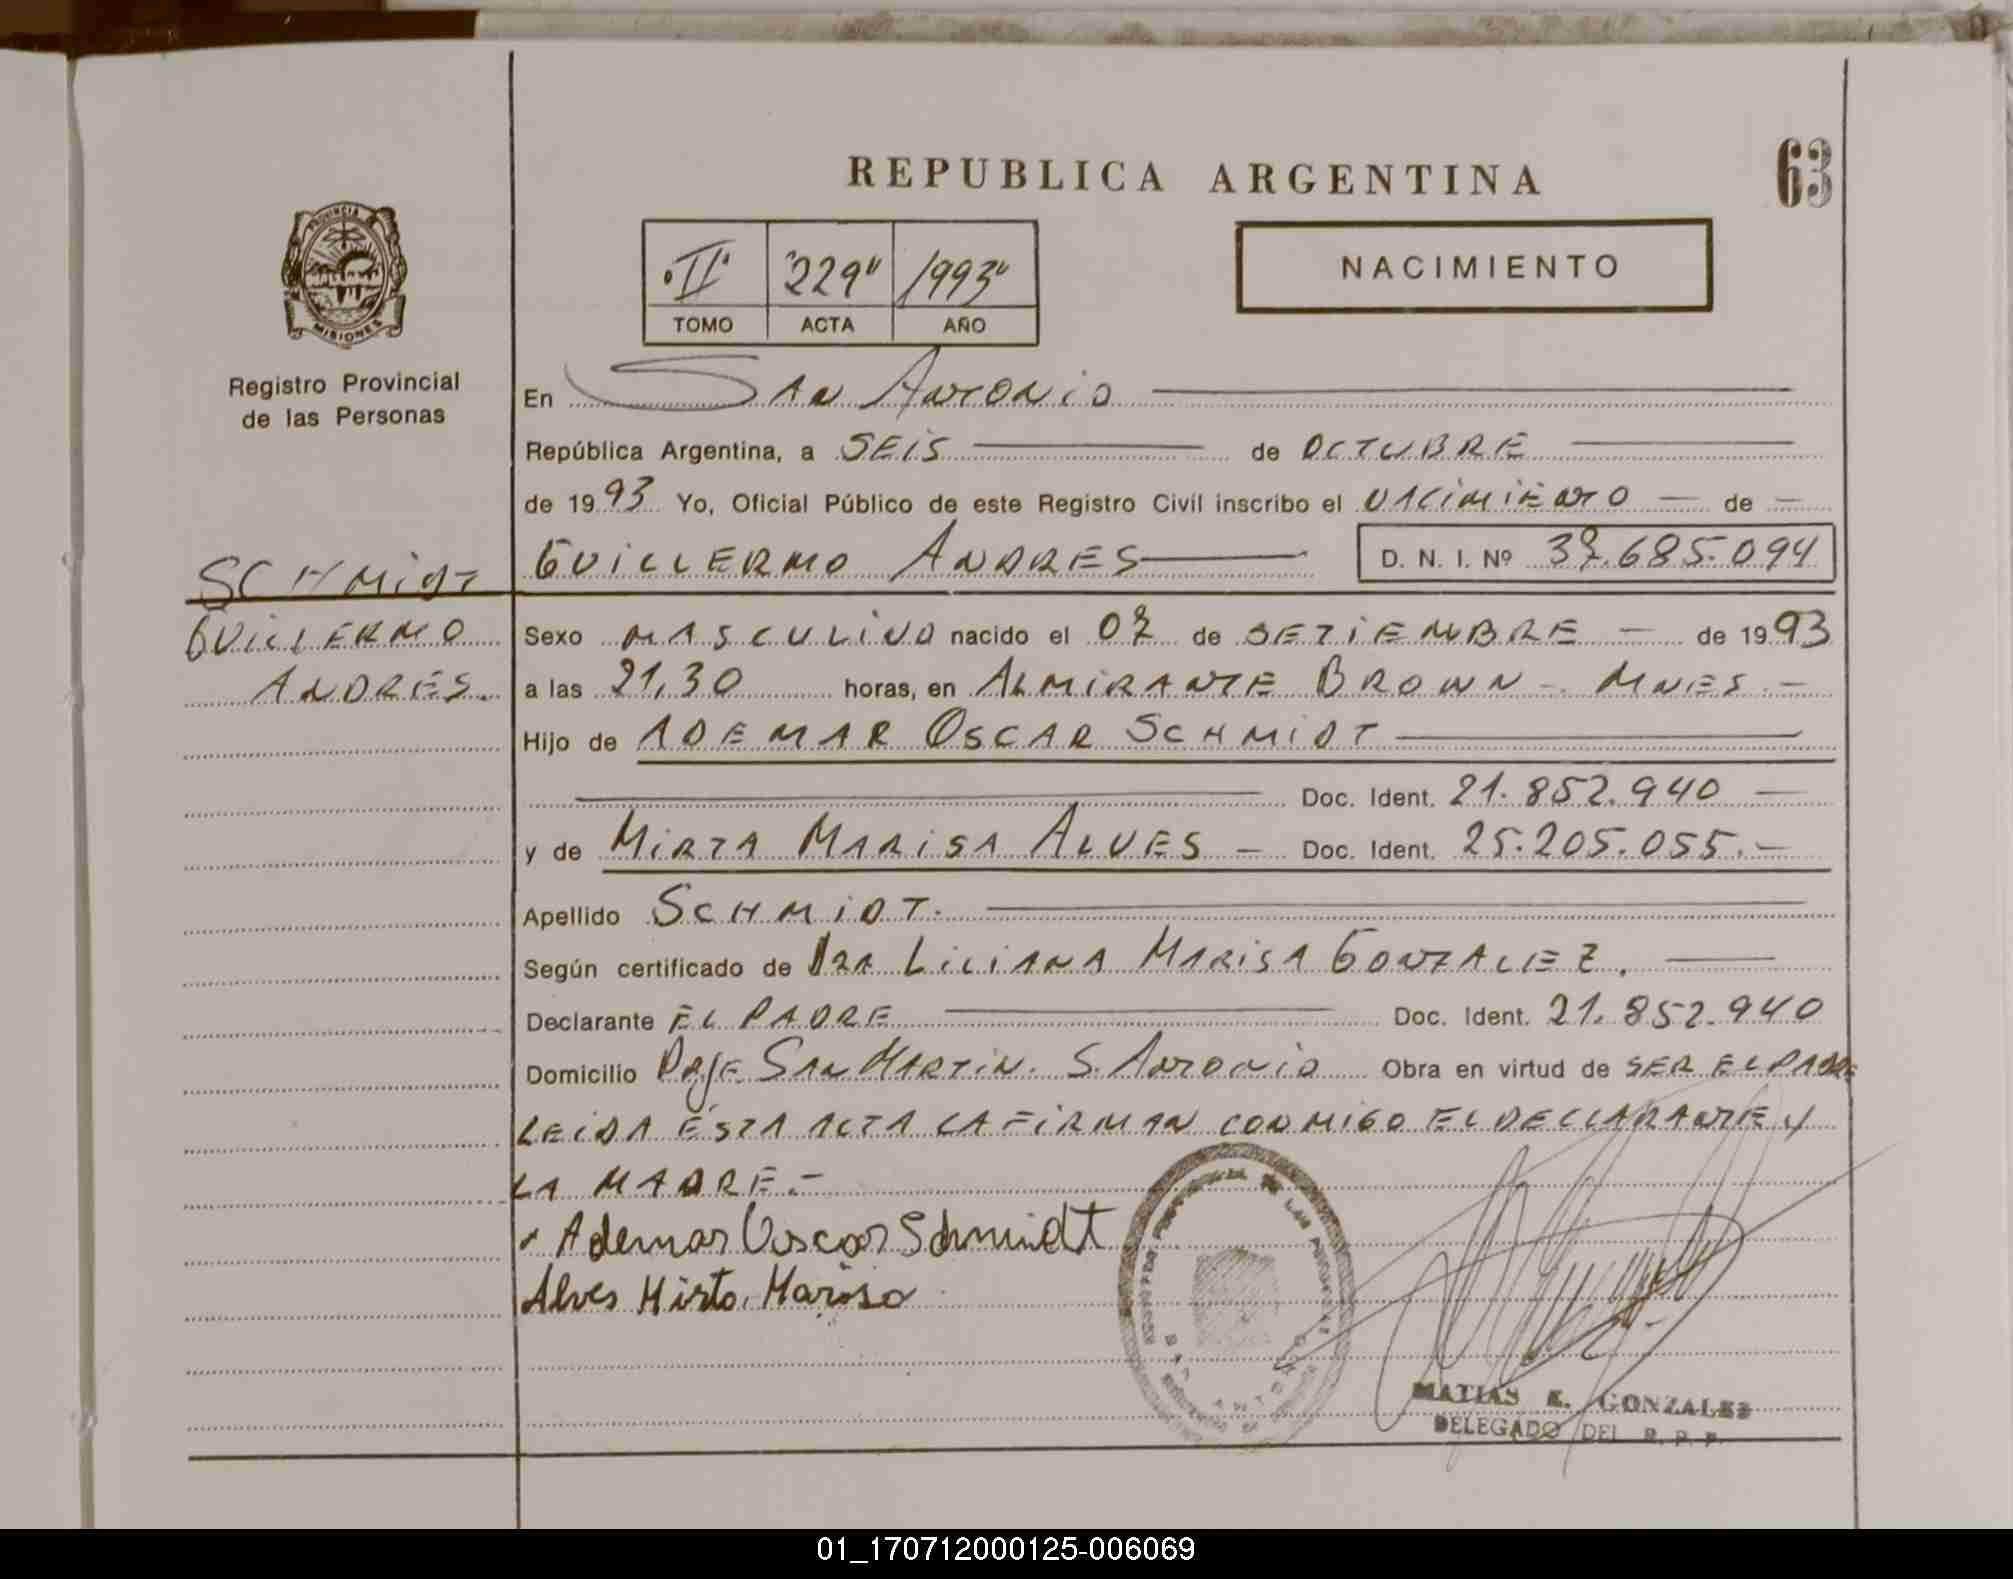 REPUBLICA ARGENTINA
63
PROVINCIA DE
MISIONES
Registro Provincial
de las Personas
"II" "229" 1993"
TOMO ACTA AÑO
NACIMIENTO
En SAN ANTONIO
República Argentina, a SEIS de OCTUBRE
de 1993 Yo, Oficial Público de este Registro Civil inscribo el NACIMIENTO — de —
SCHMIDT GUILLERMO ANDRES D. N. I. Nº 37.685.094
GUILLERMO Sexo MASCULINO nacido el 07 de SETIEMBRE — de 1993
ANDRES. a las 21,30 horas, en ALMIRANTE BROWN - MNES. —
Hijo de ADEMAR OSCAR SCHMIDT
Doc. Ident. 21.852.940 —
y de MIRTA MARISA ALVES — Doc. Ident. 25.205.055.—
Apellido SCHMIDT.
Según certificado de DRA LILIANA MARISA GONZALEZ.
Declarante EL PADRE Doc. Ident. 21.852.940
Domicilio PAJE SAN MARTIN. S. ANTONIO Obra en virtud de SER EL PADRE
LEIDA ESTA ACTA LA FIRMAN CONMIGO EL DECLARANTE Y
LA MADRE.-
Ademar Oscar Schmidt
Alves Mirta Marisa
SAN ANTONIO
MATIAS E. GONZALEZ
DELEGADO DEL R. P. P.
01_170712000125-006069